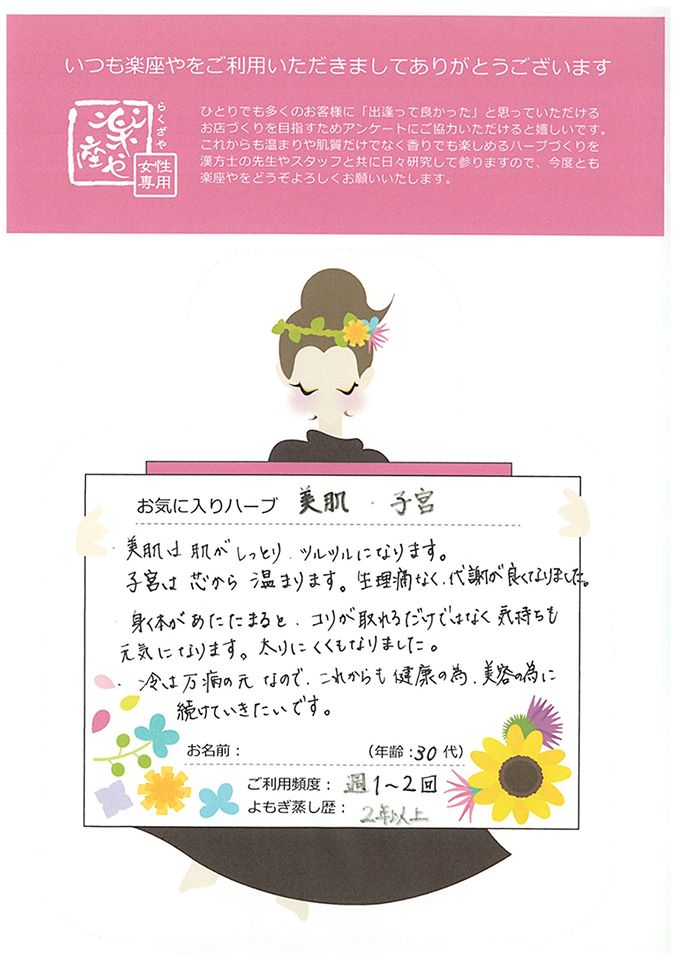 いつも楽座やをご利用いただきましてありがとうございます
らくざや
楽座や
女性専用
ひとりでも多くのお客様に「出逢って良かった」と思っていただける
お店づくりを目指すためアンケートにご協力いただけると嬉しいです。
これからも温まりや肌質だけでなく香りでも楽しめるハーブづくりを
漢方士の先生やスタッフと共に日々研究して参りますので、今度とも
楽座やをどうぞよろしくお願いいたします。
お気に入りハーブ 美肌 ・ 子宮
・美肌は 肌が しっとり、ツルツルになります。
子宮は 芯から 温まります。生理痛なく、代謝が良くなりました。
・身体があたたまると、コリが取れるだけではなく 気持ちも
元気になります。太りにくくもなりました。
・冷は万病の元 なので、これからも 健康の為、美容の為に
続けていきたいです。
お名前：
（年齢：30代）
ご利用頻度：週1〜2回
よもぎ蒸し歴：2年以上